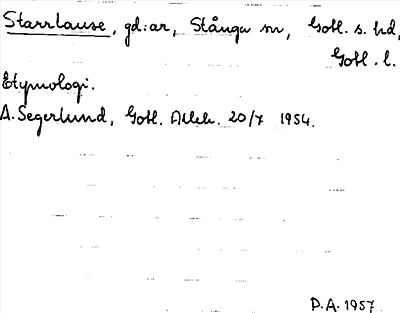 Starrlause, gd:ar, Stånga sn, Gotl. s. hd,
Gotl. l.
Etymologi.
A. Segerlund, Gotl. Alleh. 20/7 1954.
D.A. 1957.